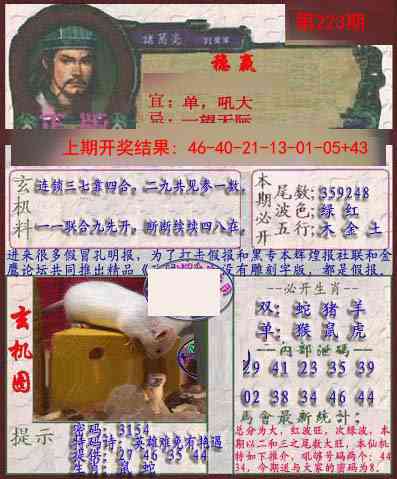 第223期
諸葛亮
稳赢
宜：单，吼大
忌：一望无际
上期开奖结果：46-40-21-13-01-05+43
玄机料
连锁三七靠四合，二九共见参一数，
一一联合九先开，断断续续四八在，
本期必开
尾数:359248
波色:绿 红
五行:木 金 土
进来很多假冒孔明报，为了打击假报和黑专本辉煌报社联和金
鹰论坛共同推出精品《
没有雕刻字版，都是假报，
玄机图
提示
密码：3154
特码诗：英雄难免有艳遇
提供：27 46 35 44
生肖：鼠 蛇
--必开生肖--
双：蛇 猪 羊
单：猴 鼠 虎
--内部泄码--
29 41 23 35 39
02 38 34 46 44
馬會最新統計：
总分为大，红波旺，次绿波，本
期以二和三之尾数大旺，本仙机
特如下推介，吼够号码两个：44
34，今期送与大家的密码为8.